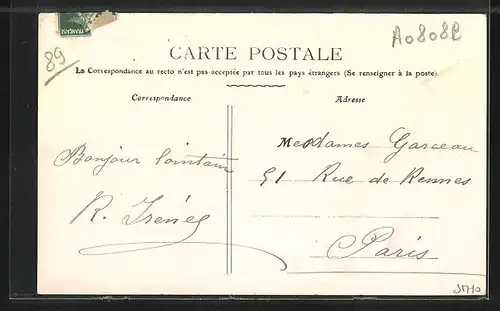 89
A0808E
CARTE POSTALE
La Correspondance au recto n'est pas acceptée par tous les pays étrangers (Se renseigner à la poste)
Correspondance
Adresse
Bonjour lointain
Mesdames Garceau
51 Rue de Rennes
Paris